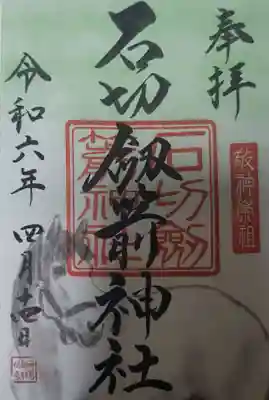 奉拝
敬神崇祖
石切劔箭神社
石切劔
箭神社
令和六年 四月十四日